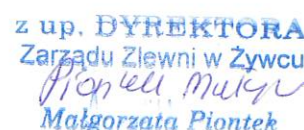 z up. DYREKTORA
Zarządu Zlewni w Żywcu
Piontek Małgo
Małgorzata Piontek